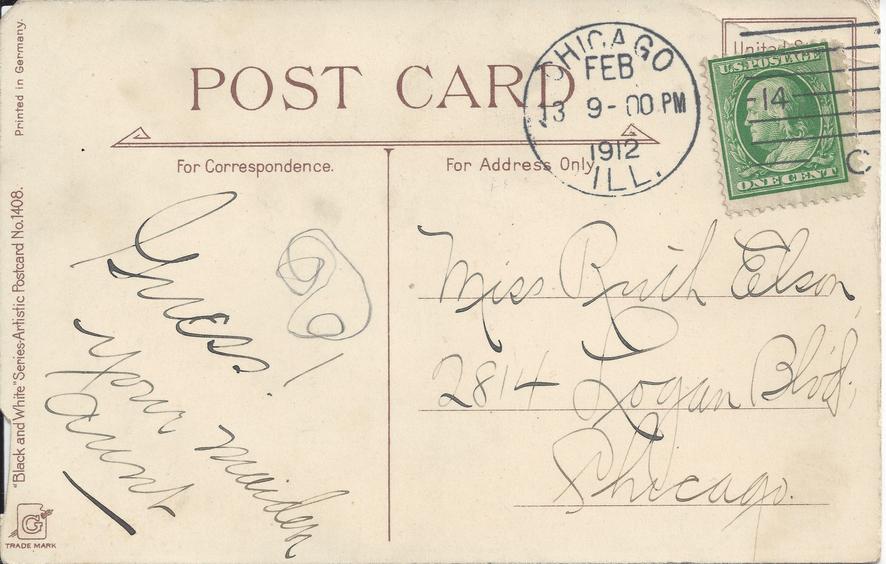 Printed in Germany.
POST CARD
CHICAGO
FEB
13 9-00 PM
1912
ILL.
U.S. POSTAGE
14
ONE CENT
C
For Correspondence.
For Address Only.
Guess.
your maiden
Aunt
Miss Ruth Elson,
2814 Logan Blvd,
Chicago.
"Black and White" Series-Artistic Postcard No. 1408.
G
TRADE MARK